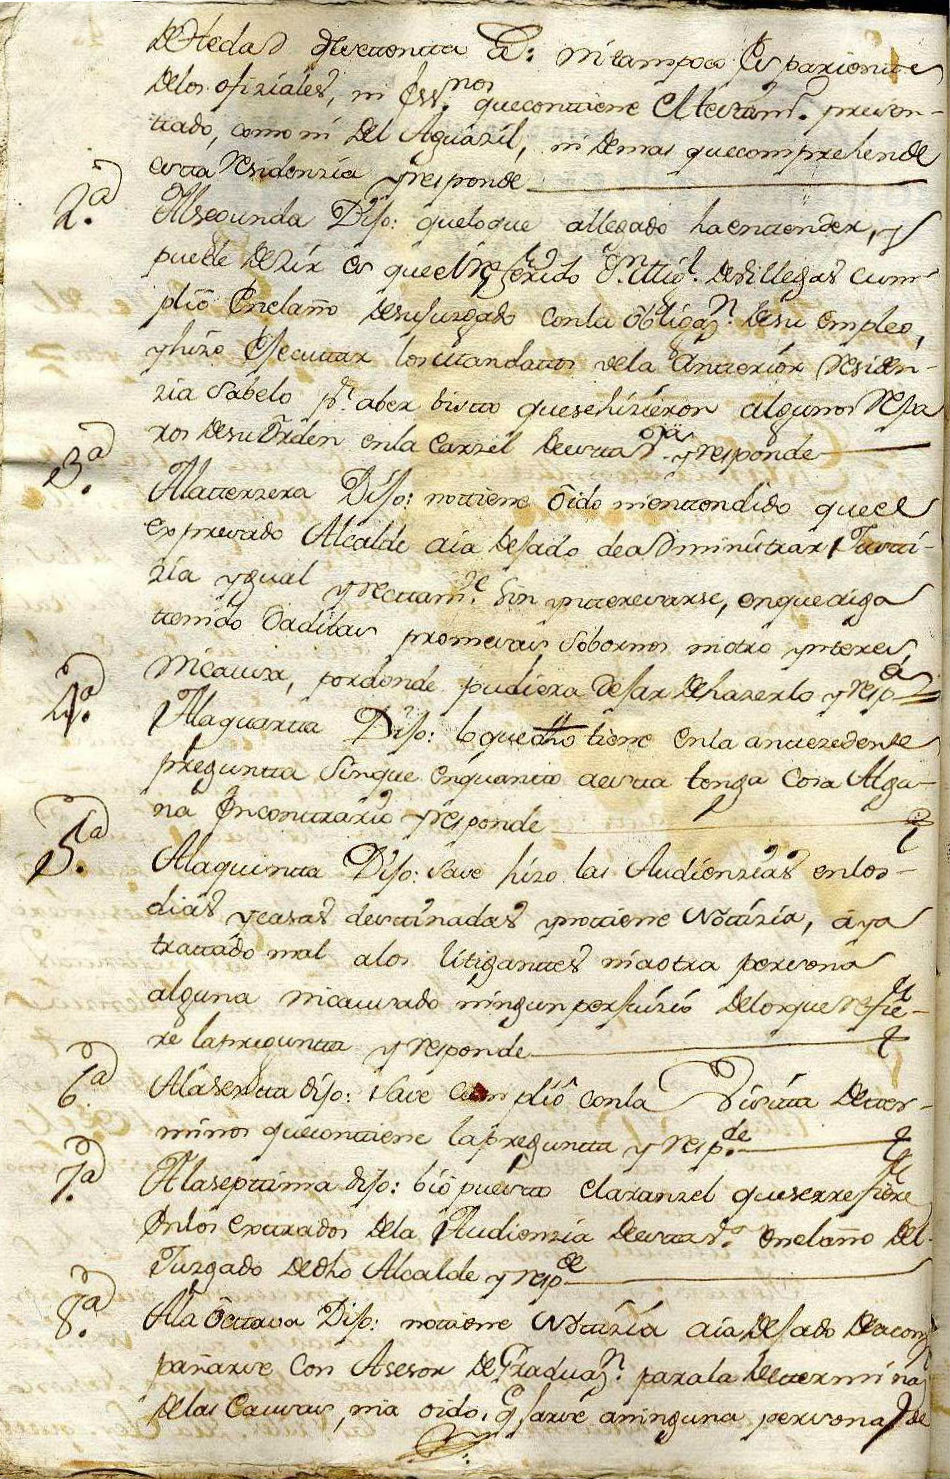 de hedad de settentta a.s: ni tampoco es pariente
de los ofiziales, ni Ess.nos que conttiene el testam.to presen-
ttado, como ni del Aguazil, ni demas que comprehende
estta residenzia y responde
2.a A la segunda Dijo: que lo que a llegado ha enttender, y
puede dezir es que el referido d.n
plió en el año de su Juzgado con la obligaz.n de su empleo,
y hizo ejecuttar los mandattos de la antterior residen-
zia sabelo p.r aber bistto que se hizieron algunos repa
ros de su orden en la carzel de estta v.a y responde
3.a A la tterzera Dijo: no ttiene oido ni enttendido que el
expresado Alcalde aia dejado de administtrar Justti-
zia ygual y recttam.te sin ynttteresarse, en que aiga
ttenido dadibas promesas sobornos ni otro ynteres
ni causa, por donde pudiera dejar de hazerlo y resp.de
4.a A la quartta Dijo: lo que dho tiene en la antezedente
pregunta sin que en quantto a estta tenga cosa Algu-
na en conttrario y responde
5.a A la quintta Dijo: save hizo las Audienzias en los
dias y casas desttinadas y no ttiene nottizia, aya
trattado mal a los litiganttes ni a otra persona
alguna ni causado ningun perjuizio de los que refie-
re la preguntta y responde
6.a A la sextta dijo: save cumplió con la Visitta de tter-
minos que conttiene la preguntta y resp.de
7.a A la septtima dijo: bió puestto el aranzel que se refiere
en los exttrados de la Audienzia de estta v.a en el año del
Juzgado de dho Alcalde y resp.de
8.a A la octtava Dijo: no ttiene nottizia aia dejado de acom
pañarse con Asesor de Graduaz.n para la dettermina
de las causas, ni a oido, q.jarse a ninguna persona de